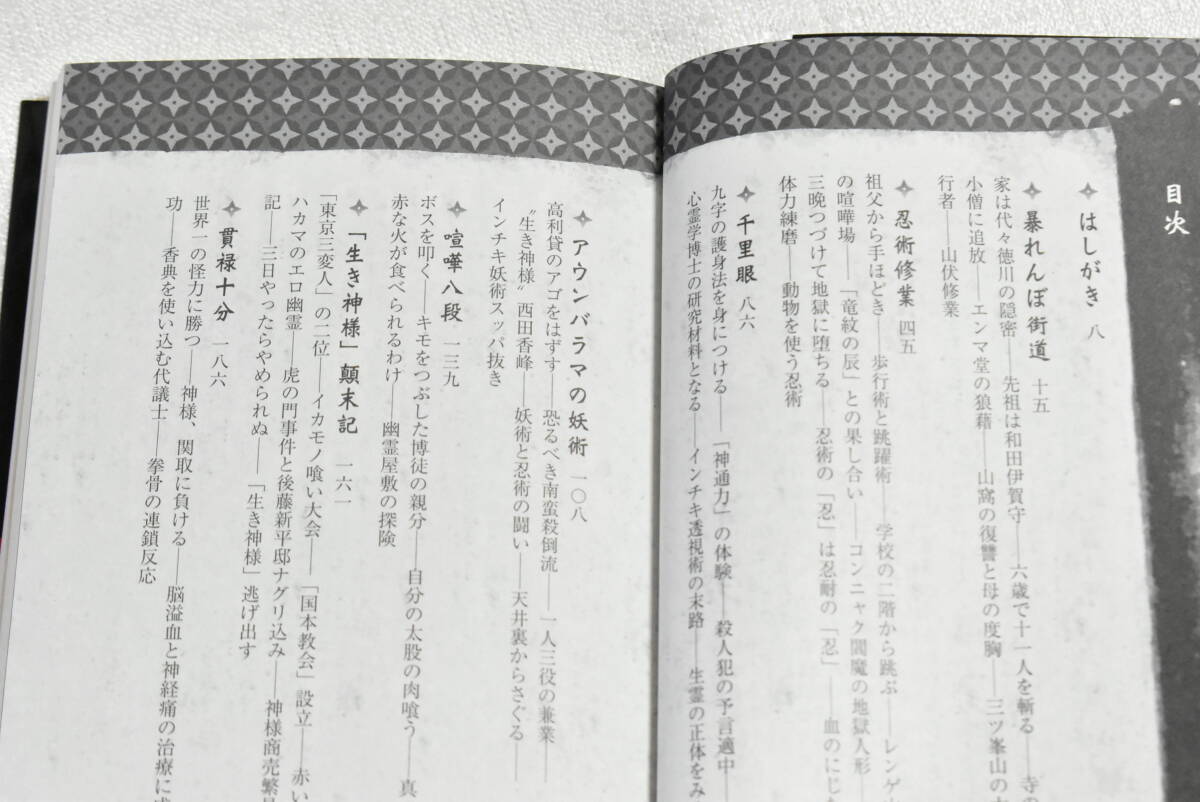 目次
はしがき 八
暴れんぼ街道 十五
家は代々徳川の隠密――先祖は和田伊賀守――六歳で十一人を斬る――寺の
小僧に追放――エンマ堂の狼藉――山窩の復讐と母の度胸――三ツ峯山の
行者――山伏修業
忍術修業 四五
祖父から手ほどき――歩行術と跳躍術――学校の二階から跳ぶ――レンゲ
の喧嘩場――「竜紋の辰」との果し合い――コンニャク閻魔の地獄人形
三晩つづけて地獄に堕ちる――忍術の「忍」は忍耐の「忍」――血のにじ
体力練磨――動物を使う忍術
千里眼 八六
九字の護身法を身につける――「神通力」の体験――殺人犯の予言適中
心霊学博士の研究材料となる――インチキ透視術の末路――生霊の正体をみ
アウンバラマの妖術 一〇八
高利貸のアゴをはずす――恐るべき南蛮殺倒流――一人三役の兼業――
〝生き神様〟西田香峰――妖術と忍術の闘い――天井裏からさぐる――
インチキ妖術スッパ抜き
喧嘩八段 一三九
ボスを叩く――キモをつぶした博徒の親分――自分の太股の肉喰う――真
赤な火が食べられるわけ――幽霊屋敷の探険
「生き神様」顛末記 一六一
「東京三変人」の二位――イカモノ喰い大会――「国本教会」設立――赤い
ハカマのエロ幽霊――虎の門事件と後藤新平邸ナグリ込み――神様商売繁昌
記――三日やったらやめられぬ――「生き神様」逃げ出す
貫禄十分 一八六
世界一の怪力に勝つ――神様、関取に負ける――脳溢血と神経痛の治療に成
功――香典を使い込む代議士――拳骨の連鎖反応